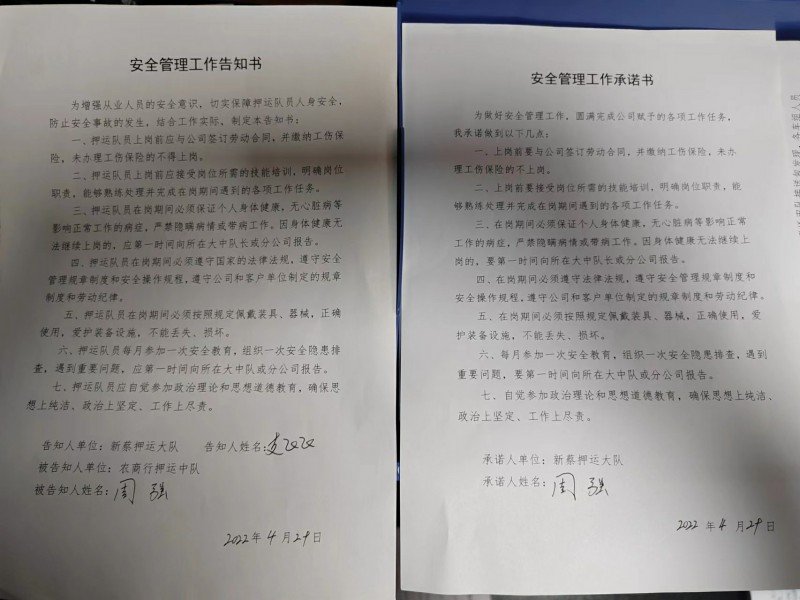 安全管理工作告知书
为增强从业人员的安全意识，切实保障押运队员人身安全，
防止安全事故的发生，结合工作实际，制定本告知书：
一、押运队员上岗前应与公司签订劳动合同，并缴纳工伤保
险，未办理工伤保险的不得上岗。
二、押运队员上岗前应接受岗位所需的技能培训，明确岗位
职责，能够熟练处理并完成在岗期间遇到的各项工作任务。
三、押运队员在岗期间必须保证个人身体健康，无心脏病等
影响正常工作的病症，严禁隐瞒病情或带病工作。因身体健康无
法继续上岗的，应第一时间向所在大中队长或分公司报告。
四、押运队员在岗期间必须遵守国家的法律法规，遵守安全
管理规章制度和安全操作规程，遵守公司和客户单位制定的规章
制度和劳动纪律。
五、押运队员在岗期间必须按照规定佩戴装具、器械，正确
使用，爱护装备设施，不能丢失、损坏。
六、押运队员每月参加一次安全教育，组织一次安全隐患排
查，遇到重要问题，应第一时间向所在大中队或分公司报告。
七、押运队员应自觉参加政治理论和思想道德教育，确保思
想上纯洁、政治上坚定、工作上尽责。
告知人单位：新蔡押运大队 告知人姓名：
被告知人单位：农商行押运中队
被告知人姓名：周强
2022年4月29日
安全管理工作承诺书
为做好安全管理工作，圆满完成公司赋予的各项工作任务，
我承诺做到以下几点：
一、上岗前要与公司签订劳动合同，并缴纳工伤保险，未办
理工伤保险的不上岗。
二、上岗前要接受岗位所需的技能培训，明确岗位职责，能
够熟练处理并完成在岗期间遇到的各项工作任务。
三、在岗期间必须保证个人身体健康，无心脏病等影响正常
工作的病症，严禁隐瞒病情或带病工作。因身体健康无法继续上
岗的，要第一时间向所在大中队长或分公司报告。
四、在岗期间必须遵守法律法规，遵守安全管理规章制度和
安全操作规程，遵守公司和客户单位制定的规章制度和劳动纪律。
五、在岗期间必须按照规定佩戴装具、器械，正确使用，爱
护装备设施，不能丢失、损坏。
六、每月参加一次安全教育，组织一次安全隐患排查，遇到
重要问题，要第一时间向所在大中队或分公司报告。
七、自觉参加政治理论和思想道德教育，确保思想上纯洁、
政治上坚定、工作上尽责。
承诺人单位：新蔡押运大队
承诺人姓名：周强
2022年4月29日